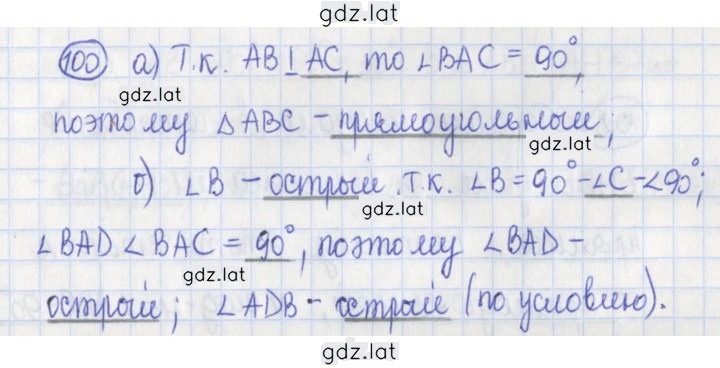 gdz.lat
100 а) Т.к. AB⊥AC, то ∠BAC = 90°,
gdz.lat
поэтому △ABC – прямоугольный;
gdz.lat
б) ∠B – острый, т.к. ∠B = 90° - ∠C - ∠90°;
gdz.lat
∠BAD ∠ BAC = 90°, поэтому ∠BAD –
gdz.lat
острый; ∠ADB – острый (по условию).
gdz.lat